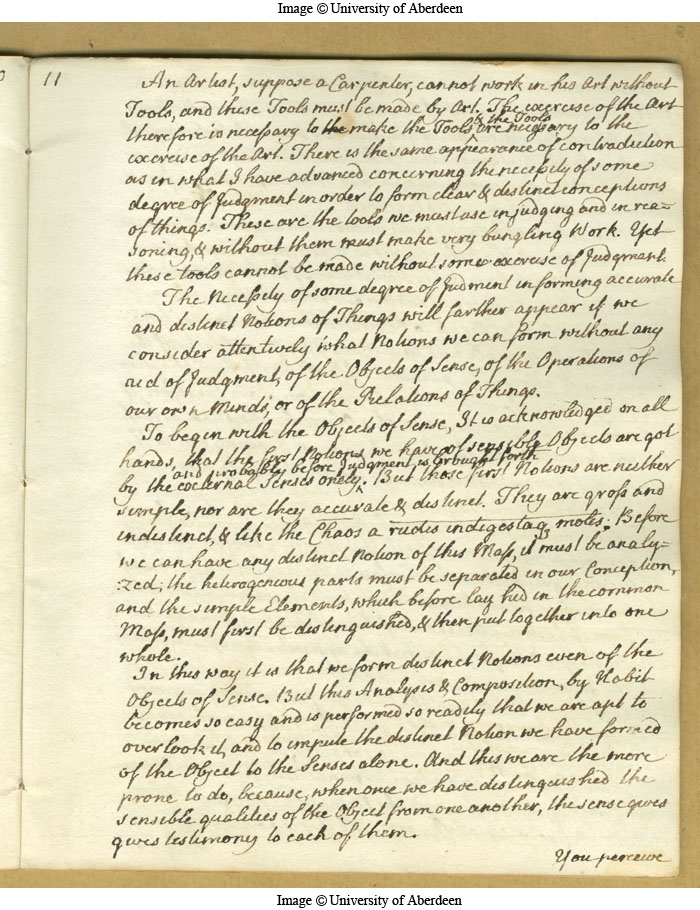 Image © University of Aberdeen
11
An Artist, suppose a Carpenter, cannot work in his Art without
Tools, and these Tools must be made by Art. The exercise of the Art
& the Tools
therefore is necessary to the make the Tools are necessary to the
exercise of the Art. There is the same appearance of contradiction
as in what I have advanced concerning the necessity of some
degree of Judgment in order to form clear & distinct conceptions
of things. These are the tools we must use in judging and in rea=
soning, & without them must make very bungling Work. Yet
these tools cannot be made without some exercise of Judgment.
The Necessity of some degree of Judment in forming accurate
and distinct Notions of Things will farther appear if we
consider attentively what Notions we can form without any
aid of Judgment, of the Objects of Sense, of the Operations of
our own Minds, or of the Relations of Things.
To begin with the Objects of Sense, It is acknowledged on all
hands, that the first Notions we have of sensible Objects are got
and probably before Judgment is brought forth
by the external Senses onely. But those first Notions are neither
simple, nor are they accurate & distinct. They are gross and
indistinct, & like the Chaos a rudis indigestaq moles. Before
we can have any distinct Notion of this Mass, it must be analy=
zed; the heterogeneous parts must be separated in our Conception,
and the simple Elements, which before lay hid in the common
Mass, must first be distinguished, & then put together into one
whole.
In this way it is that we form distinct Notions even of the
Objects of Sense. But this Analysis & Composition, by Habit
becomes so easy and is performed so readily that we are apt to
over look it, and to impute the distinct Notion we have formed
of the Object to the Senses alone. And this we are the more
prone to do, because, when once we have distinguished the
sensible qualities of the Object from one another, the sense gives
gives testimony to each of them.
You perceive
Image © University of Aberdeen